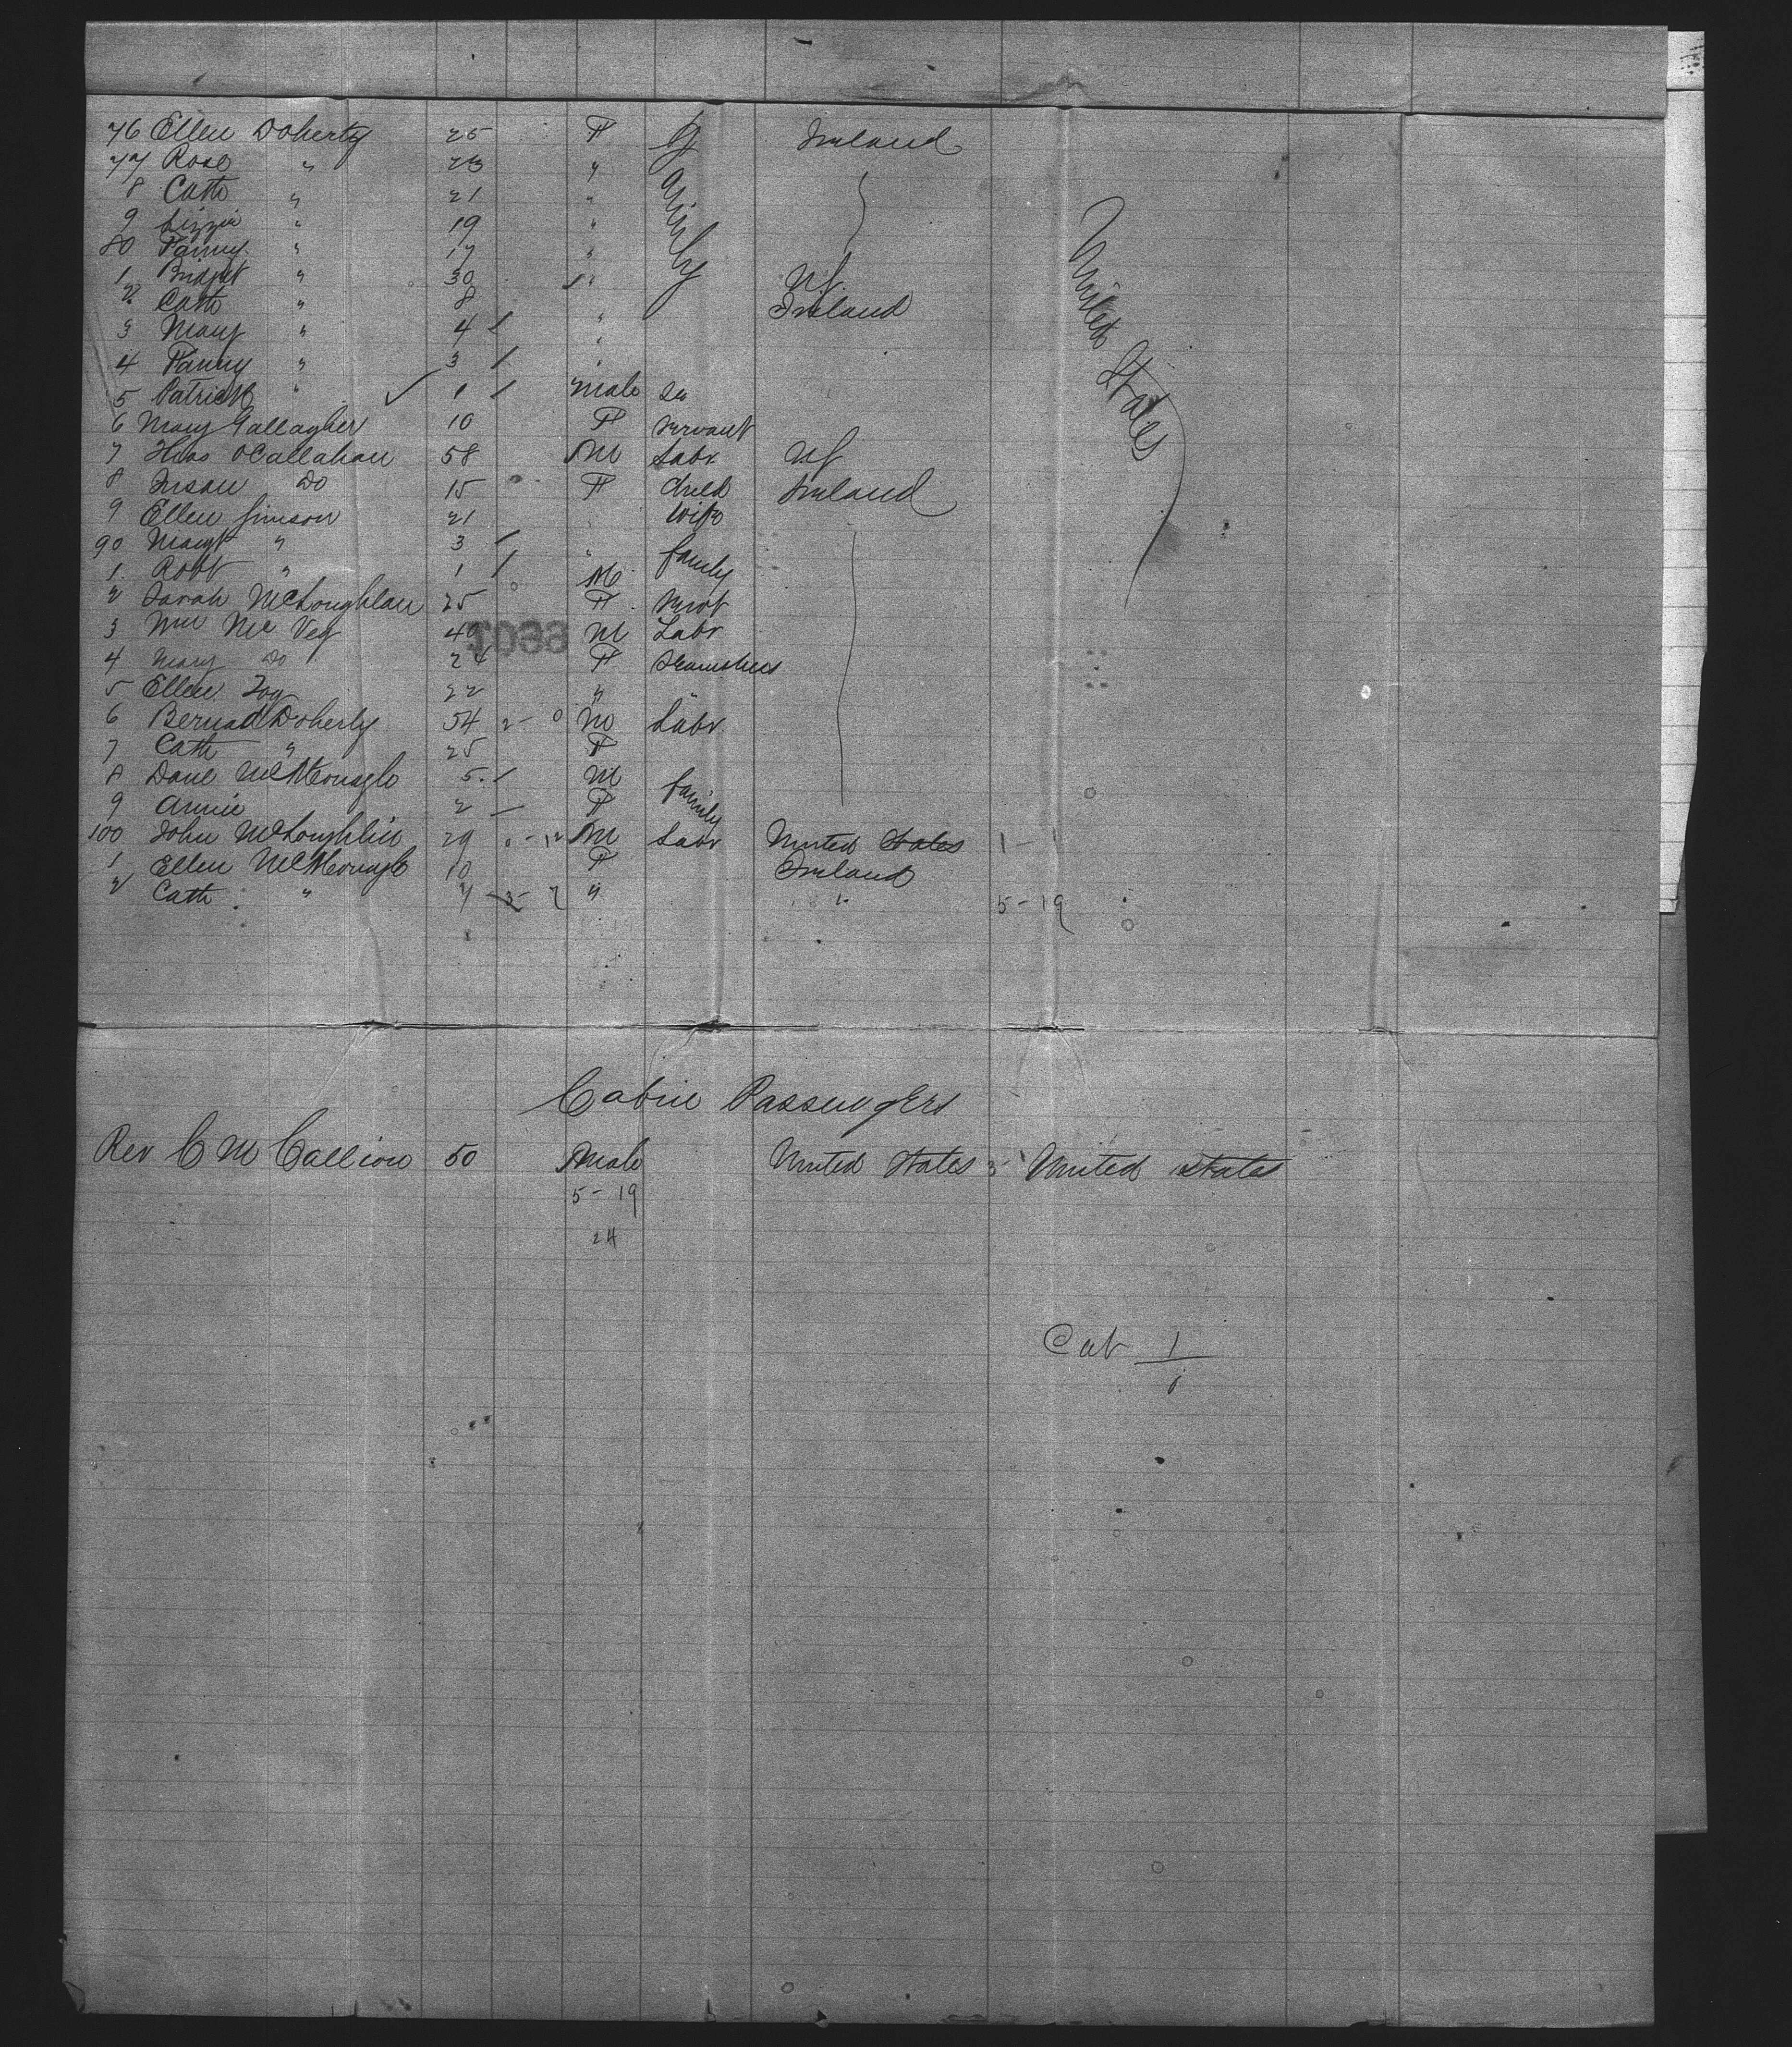 76 Ellen Doherty 25 F Ireland
77 Rose " 23 "
8 Cath " 21 "
9 Lizzie " 19 "
80 Fanny " 17 "
family
1 Bridget " 30 "
2 Cath " 8 Ireland
3 Mary " 4 "
4 Fanny " 3 "
5 Patrick " ✓ 1 Male
United States
6 Mary Gallagher 10 F Servant
7 Thos OCallahan 58 M Labr
8 Susan Do 15 F Child Ireland
9 Ellen Jimson 21 Wife
90 Margt " 3 " family
1 Robt " 1 M
2 Sarah McLoughlan 25 F Servt
3 Wm Mc Vey 40 M Labr
4 Mary Do 24 F Seamstress
5 Ellen Foy 22 " "
6 Bernad Doherty 54 2 - 0 M Labr
7 Cath " 25 F
8 Danl McMonagle 5 M family
9 Annie 2 F
100 John McLoughlin 29 0 - 12 M Labr United States 1 - 1
1 Ellen McMonagle 10 F Ireland
2 Cath " 7 - 7 " " 5 - 19
Cabin Passengers
Rev C M Callion 50 Male United States United States
5 - 19
24
Cab 1